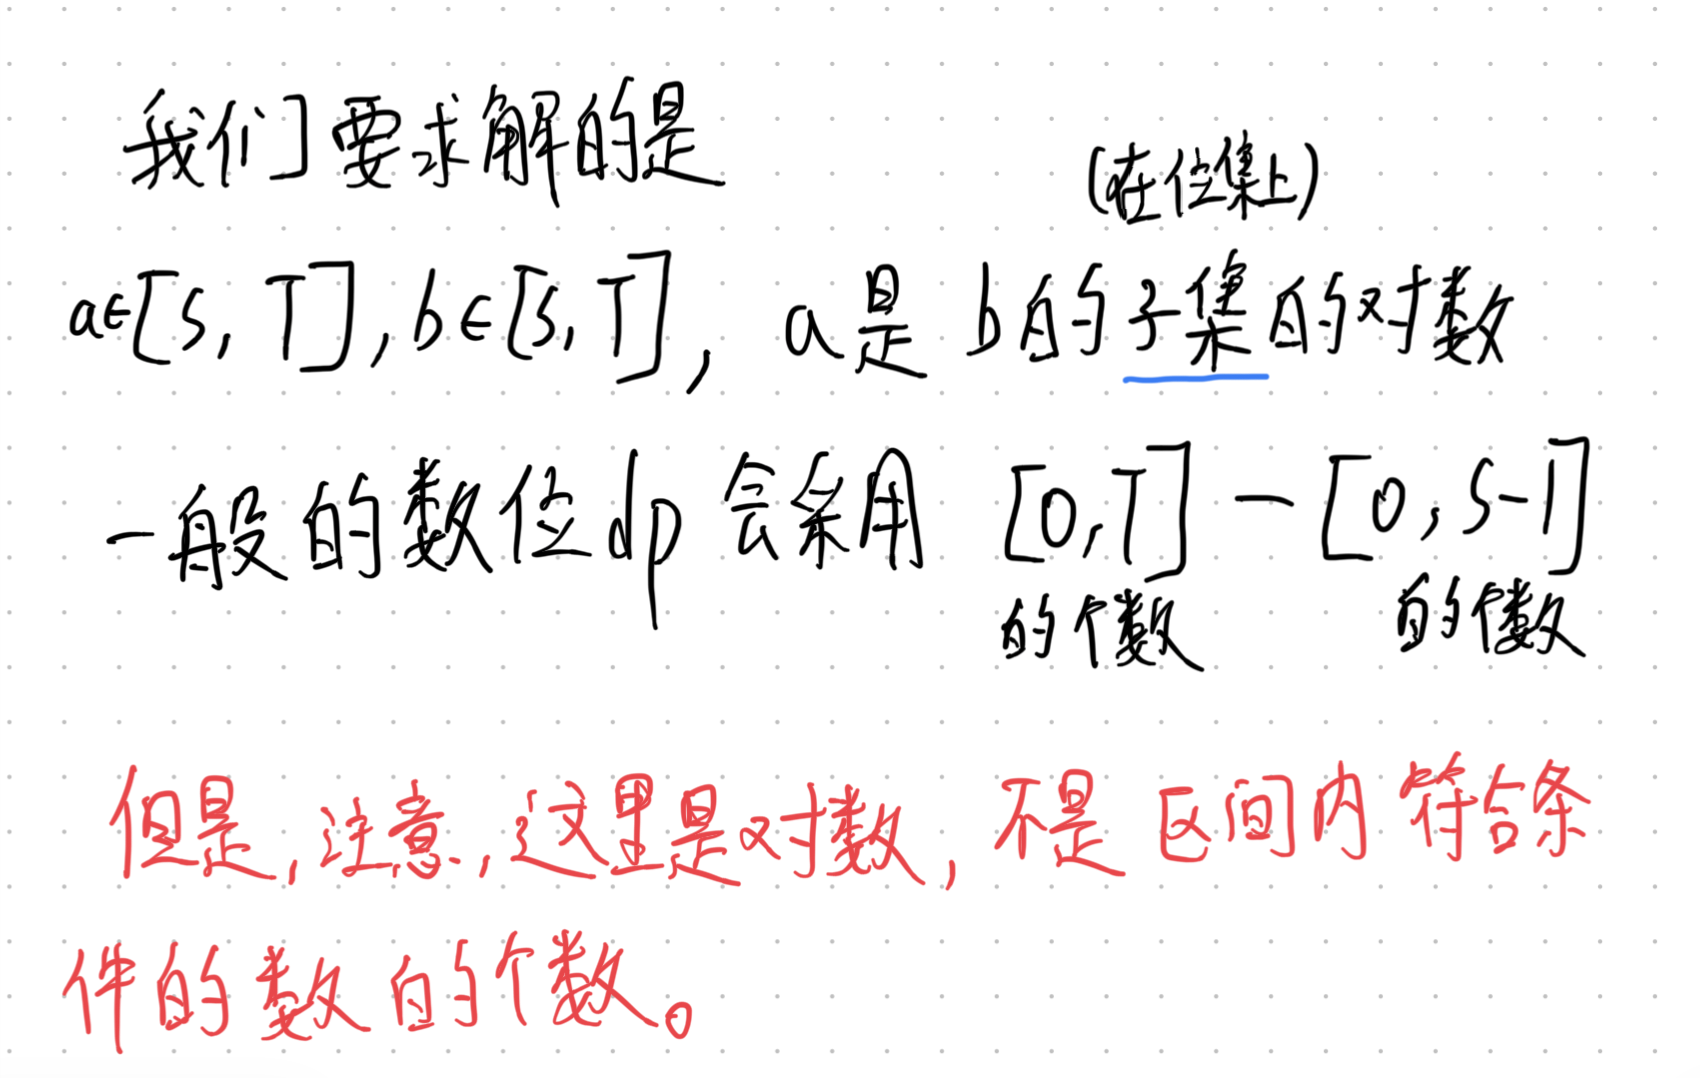 我们要求解的是
(在位集上)
a∈[S, T], b∈[S, T], a是b的子集的对数
一般的数位dp会采用 [0,T] - [0, S-1]
的个数 的个数
但是,注意,这里是对数,不是区间内符合条
件的数的个数。